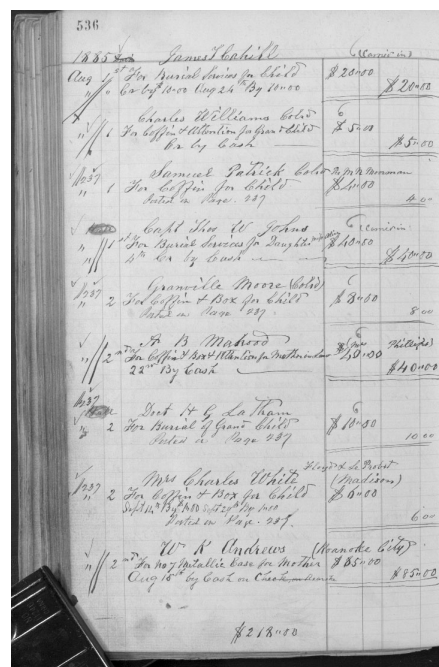 536
1885 James Cahill
Aug 1st For Burial Services for Child $20.00
Cr by 10.00 Aug 24th By 10.00 $20.00
Charles Williams Cold
" 1 For Coffin & Attention for Grand Child $5.00
Cr by Cash $5.00
Samuel Patrick Cold
" 1 For Coffin for Child $4.00
Posted on Page 237 4.00
Capt Thos W Johns
" 1st For Burial Services for Daughter $40.00
4th Cr by Cash $40.00
Granville Moore (Cold)
" 2 For Coffin & Box for Child $8.00
Posted on Page 237 8.00
B Mahood Phillips
" 2nd For Coffin & Box & Attention for Mother in Law $40.00
22nd By Cash $40.00
Doct H G LaTham
2 For Burial of Grand Child $10.00
Posted on Page 237 10.00
Floyd &
Mrs Charles White (Madison)
" 2 For Coffin & Box for Child $6.00
Sept 14th By 1.00 Sept 29th By 1.00
Posted on Page 237 6.00
W K Andrews (Roanoke City)
" 2nd For No 7 Metallic Case for Mother $85.00
Aug 15th by Cash $85.00
$218.00